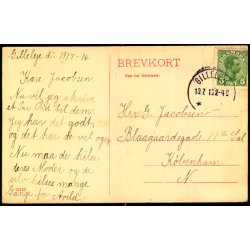 Gilleleje d: 19/7-16
BREVKORT
Kun for Adressen:
GILLELEJE
19.7.16 2-4 S
Kære Jacobsen
Nu vil jeg skrive
et Par Ord til dem
Jeg har det godt
og det har de vel og
Nu maa De hilse
deres Moder og De
selv hilses mange
Gange fra Arild.
Hrv G. Jacobsen
Blaagaardsgade 17 Sal
København
N